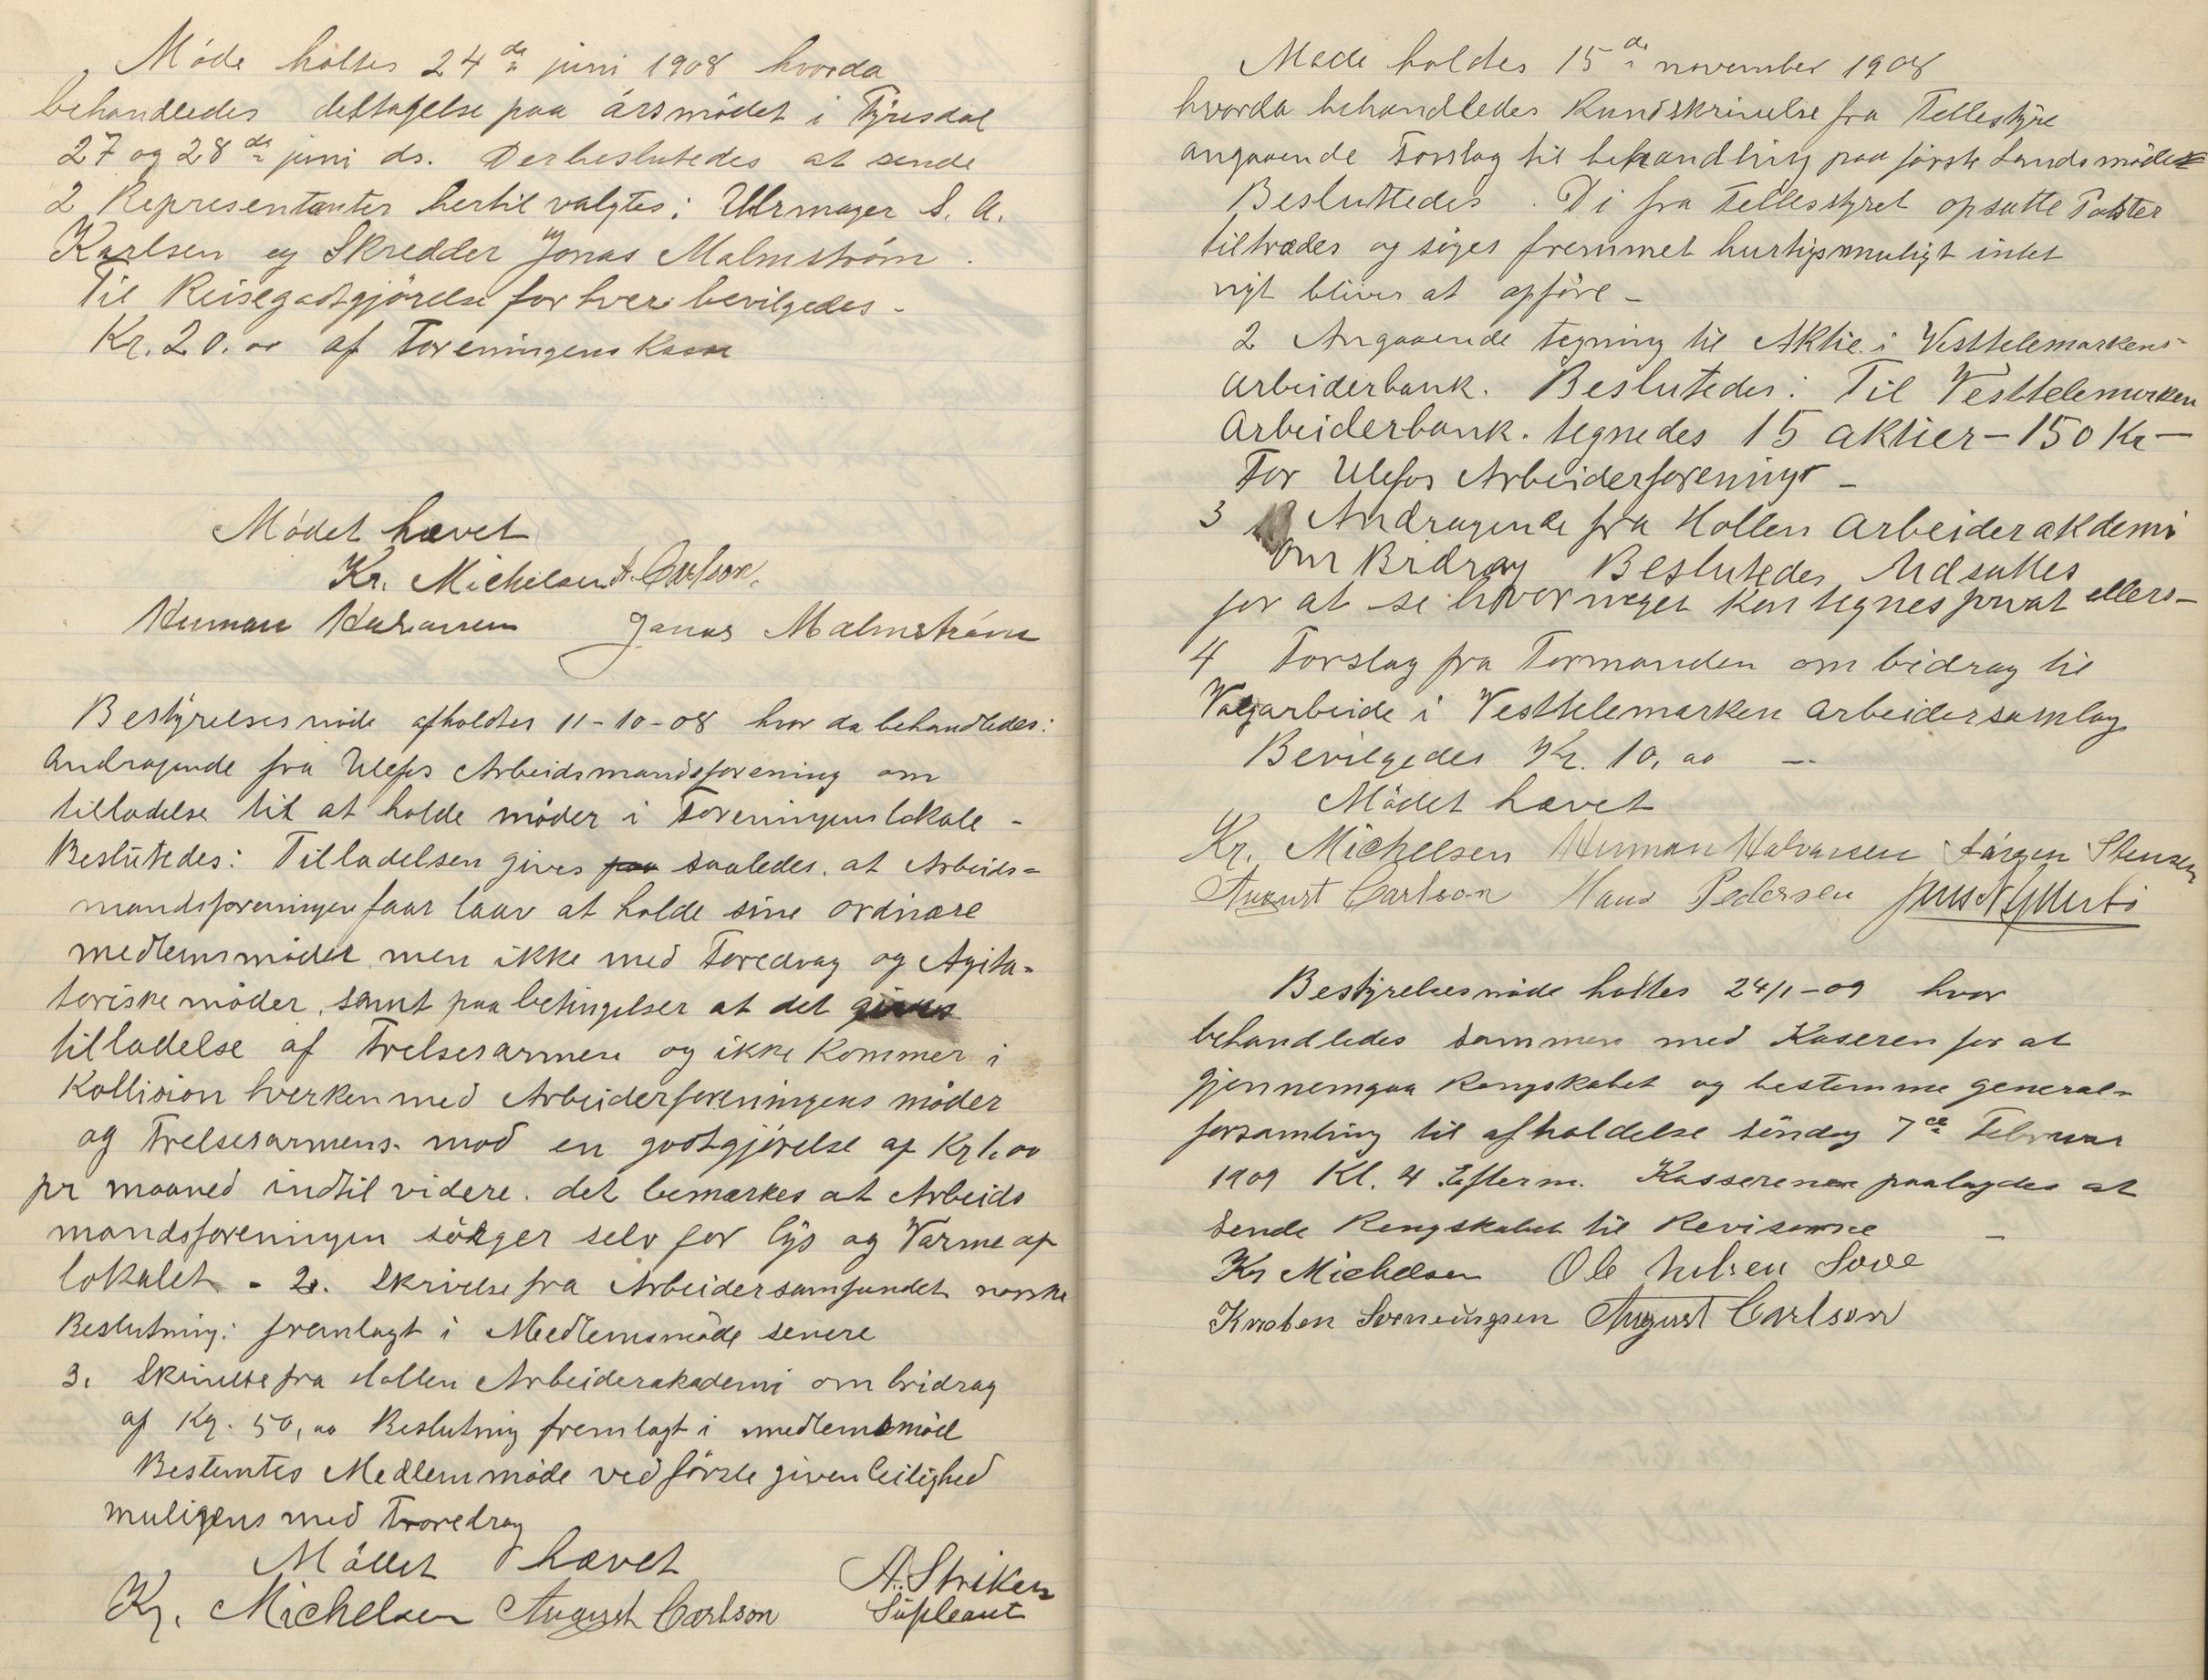 Møde holtes 24de juni 1908 hvorda
behandledes deltagelse paa årsmødet i Tyrisdal
27 og 28de juni ds. Der beslutedes at sende
2 Representanter hertil valgtes: Uhrmager S. A.
Karlsen og Skredder Jonas Malmström.
Til Reisegodtgjørelse for hver bevilgedes -
Kr. 20.00 af Foreningens Kasse
Mødet hævet
Kr. Michelsen A. Carlson.
Herman Halvorsen Jonas Malmström
Bestyrelsesmøde afholdtes 11-10-08 hvor da behandledes:
Andragende fra Ulefos Arbeidsmandsforening om
tilladelse til at holde møder i Foreningens lokale -
Beslutedes: Tilladelsen gives paa saaledes. at Arbeids=
mandsforeningen faar laav at holde sine ordinære
medlemsmøder men ikke med Foredrag og Agita=
toriske møder, samt paa betingelser at det gives
tilladelse af Frelsesarmen og ikke Kommer i
Kollision hverken med Arbeiderforeningens møder
og Frelsesarmens. mod en godtgjørelse af Kr 1.00
pr maaned indtil videre. det bemærkes at Arbeids
mandsforeningen sørger selv for lys og Varme af
lokalet - 2. Skrivelse fra Arbeidersamfundet norske
Beslutning: fremlagt i Medlemsmøde senere
3. Skrivelse fra Hollen Arbeiderakademi om bidrag
af Kr. 50,00 Beslutning fremlagt i medlemsmøde
Bestemtes Medlemmøde ved første given leilighed
muligens med Foredrag
Mødet hævet
Kr. Michelsen August Carlson
A. Striken
Supleant
Møde holdes 15de november 1908
hvorda behandledes Rundskrivelse fra Fellestyre
angaaende Forslag til behandling paa første Landsmøde
Besluttedes. Di fra Fellesstyret opsatte Poster
tiltrædes og søges fremmet hurtigsmuligt intet
nyt bliver at opføre -
2 Angaaende tegning til Aktie i Vesttelemarkens
arbeiderbank. Beslutedes: Til Vesttelemarken
Arbeiderbank. tegnedes 15 aktier - 150 Kr -
For Ulefos Arbeiderforening -
3 Andragende fra Hollen Arbeiderakdemi
om Bidrag Beslutedes Udsattes
for at se hvor meget kan tegnes privat ellers -
4 Forslag fra Formanden om bidrag til
Valgarbeide i Vesttelemarken Arbeidersamlag
Bevilgedes Kr. 10,00 -
Mødet hævet
Kr. Michelsen Herman Halvorsen Jørgen Stensen
August Carlson Hans Pedersen
Bestyrelsesmøde holtes 24/1-09 hvor
behandledes sammen med Kaseren for at
gjennemgaa Rengskabet og bestemme general=
forsamling til afholdelse søndag 7de Februar
1909 Kl. 4 Efterm. Kasseren paalagdes at
sende Rengskabet til Revisorne -
Kr Michelsen Ole Nilsen Sove
Kresten Sveinungsen August Carlson